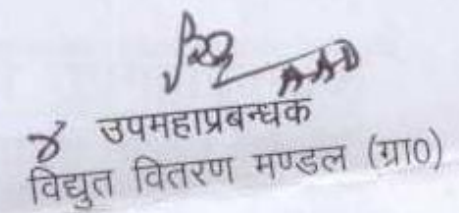 उपमहाप्रबन्धक
विद्युत वितरण मण्डल (ग्रा०)